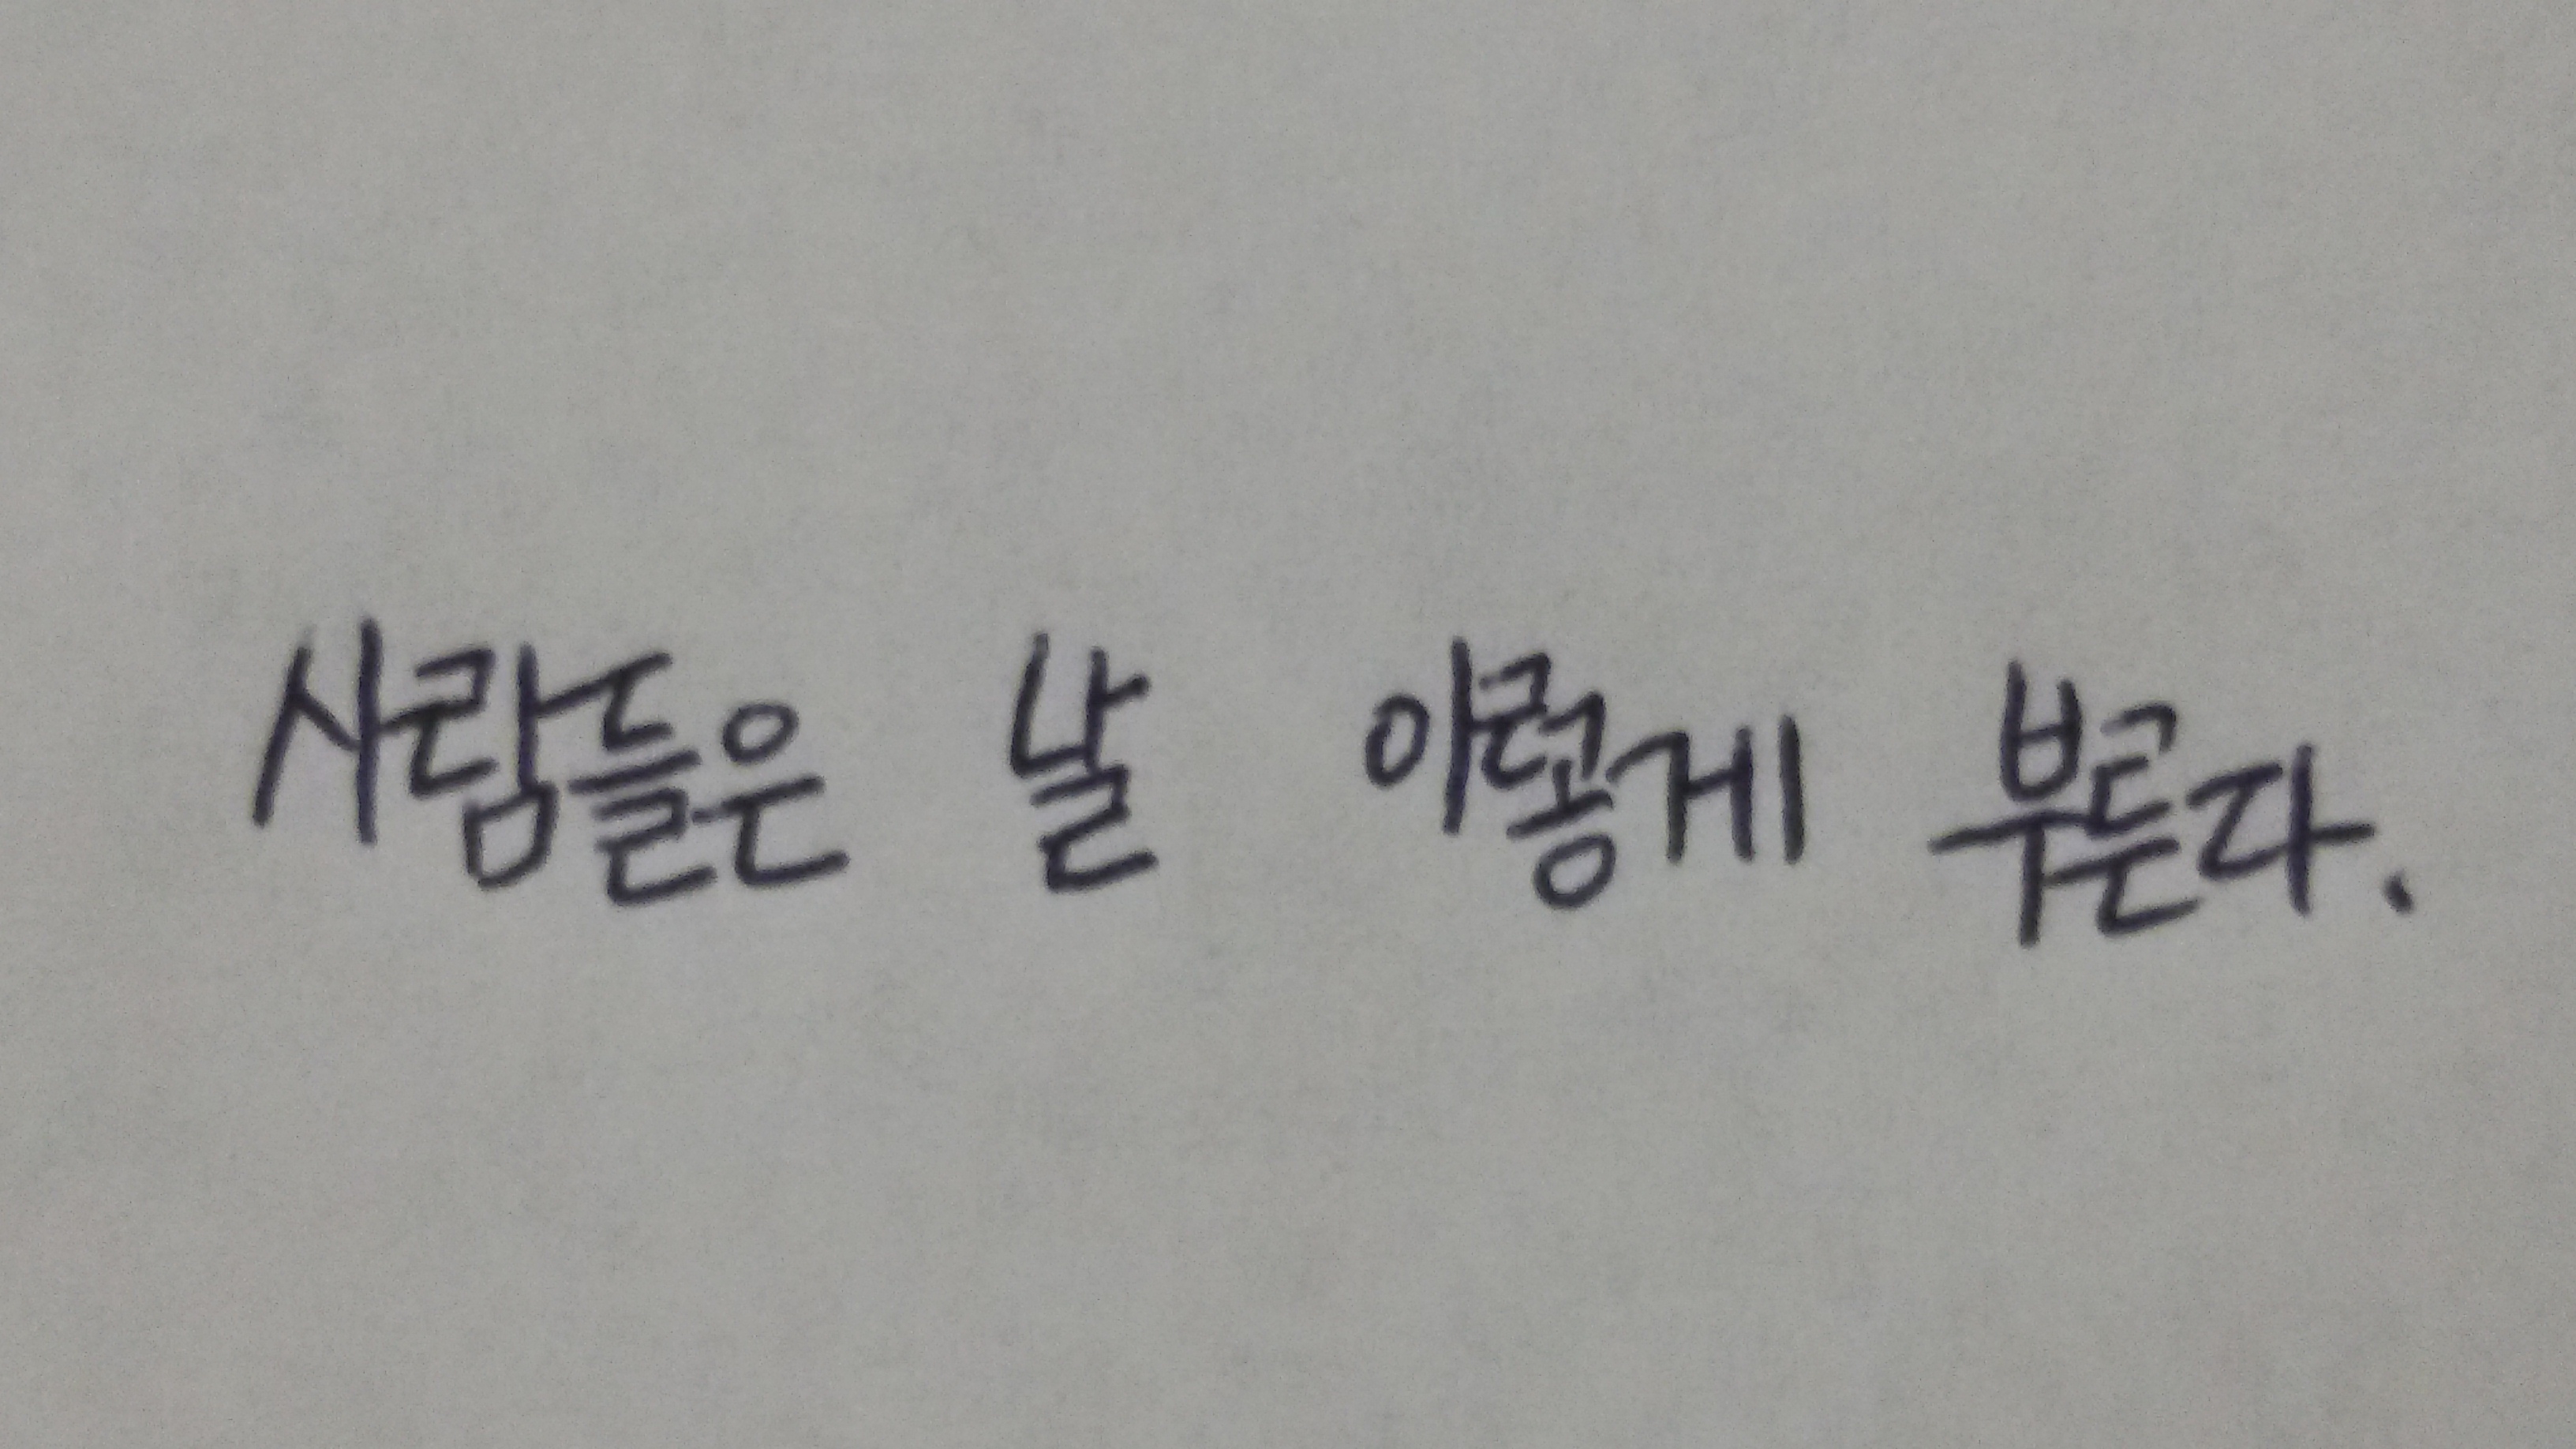 사람들은 날 이렇게 부른다.